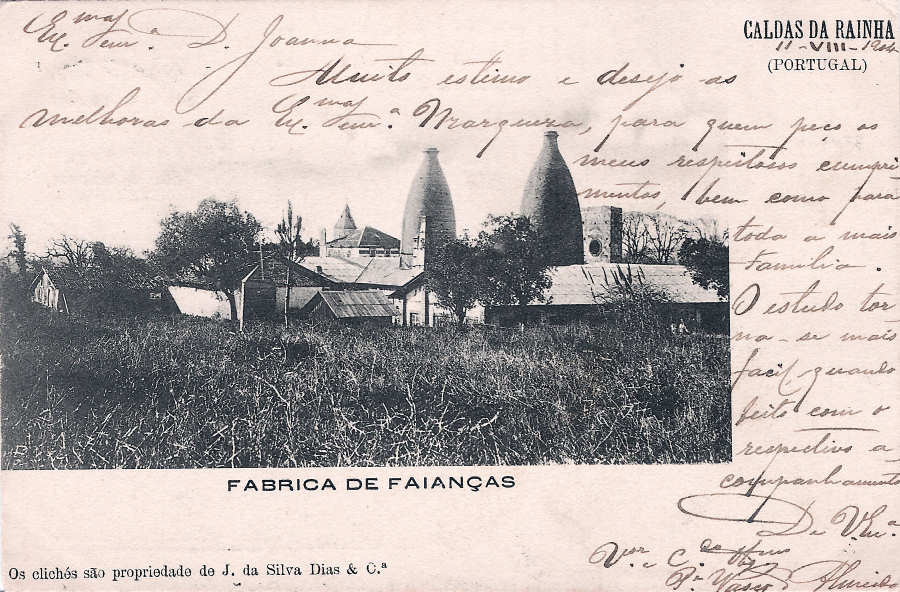 CALDAS DA RAINHA
11-VIII-1904
(PORTUGAL)
Ex.ma Senr.ª D. Joanna
Muito estimo e desejo as
melhoras da Ex.ma Senr.ª Marqueza, para quem peço os
meus respeitosos cumpri
mentos, bem como para
toda a mais
Familia.
O estudo tor
na-se mais
facil, quando
feito com o
respectivo a
companhamento
De V. Ex.ª
FABRICA DE FAIANÇAS
Os clichés são propriedade de J. da Silva Dias & C.ª
V.or e C.do
Vasco Almeida